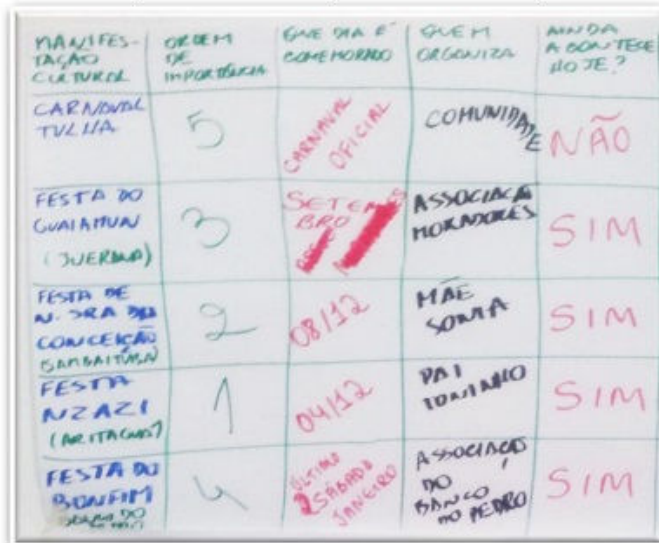 MANIFES-
TAÇÃO
CULTURAL
ORDEM
DE
IMPORTÂNCIA
QUE DIA É
COMEMORADO
QUEM
ORGANIZA
AINDA
ACONTECE
HOJE?
CARNAVAL
TULHA
5
CARNAVAL
OFICIAL
COMUNIDADE
NÃO
FESTA DO
GUAIAMUM
(JUERANA)
3
SETEM
BRO
ASSOCIAÇÃ
MORADORES
SIM
FESTA DE
N. SRA DA
CONCEIÇÃO
SAMBAITUBA
2
08/12
MÃE
SONIA
SIM
FESTA
NZAZI
(ARITAGUÁ)
1
04/12
PAI
TONINHO
SIM
FESTA DO
BONFIM
4
ÚLTIMO
SÁBADO
JANEIRO
ASSOCIAÇÃO
DO
BANCO
DO PEDRO
SIM